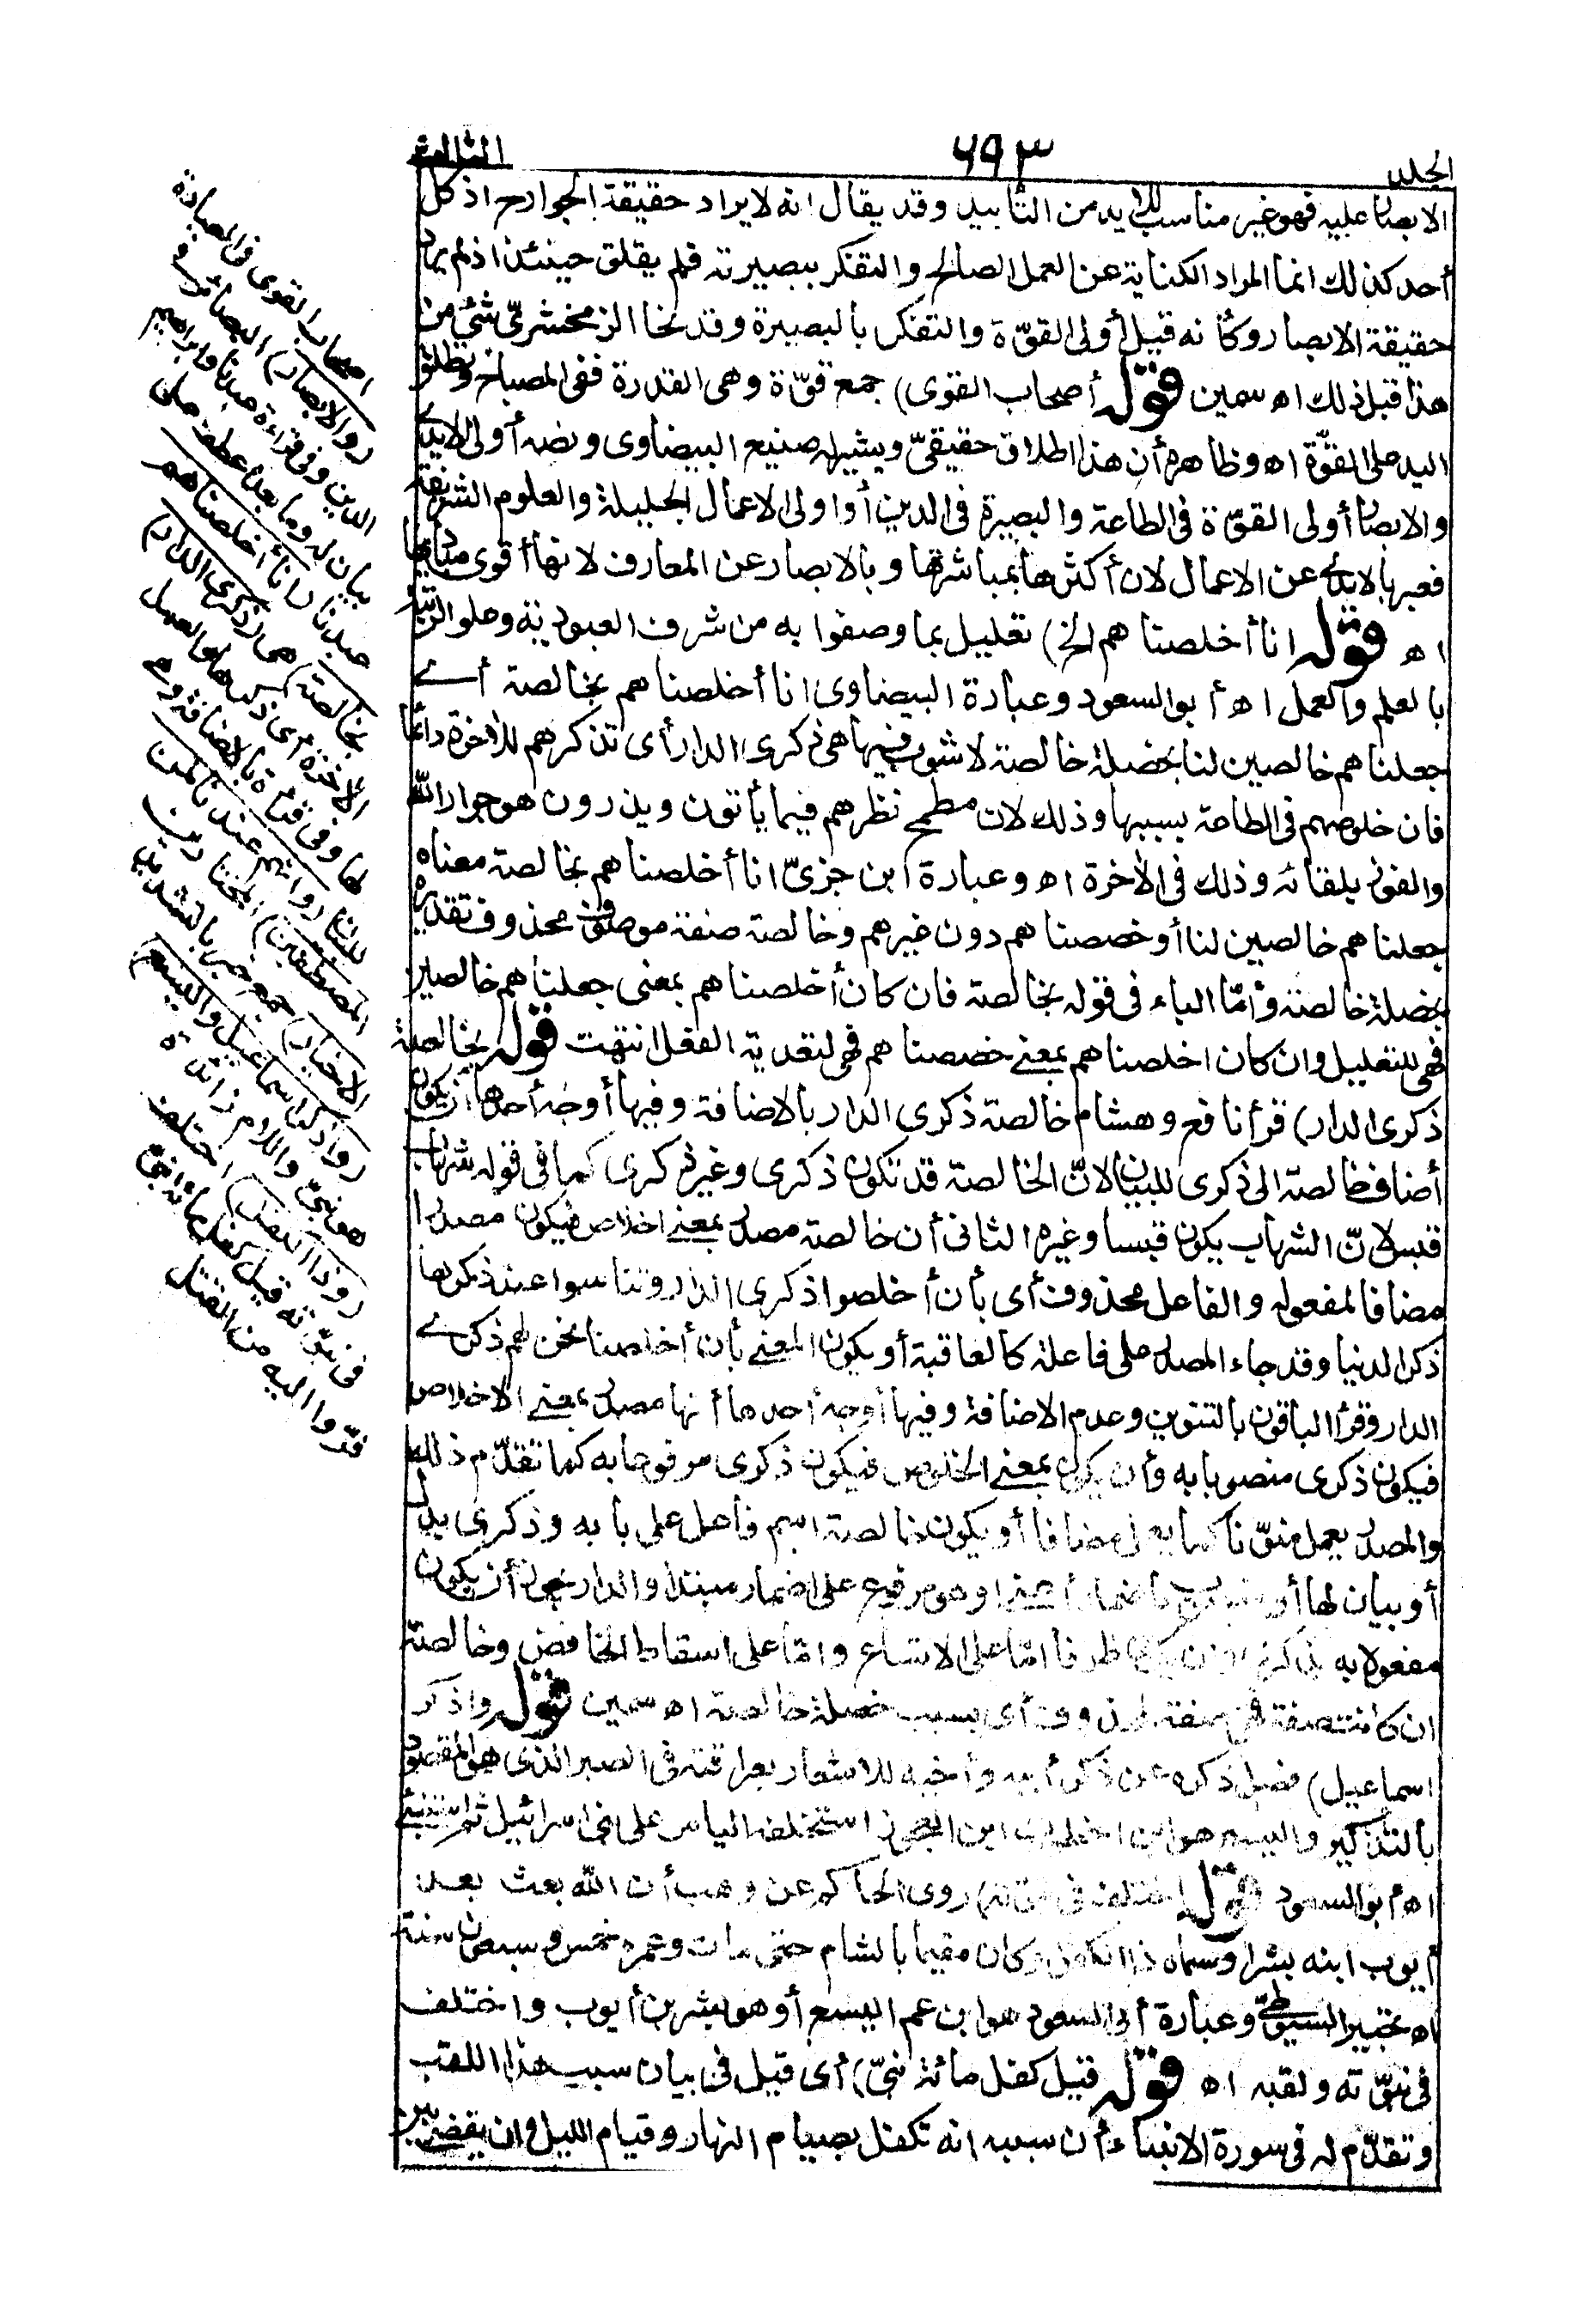 الجلد
٦٩٣
الثالث
الابصار عليه فهو غير مناسب للايد من التأييد وقد يقال انه لا يراد حقيقة الجوارح اذ كل
أحد كذلك انما المراد الكناية عن العمل الصالح والتفكر ببصيرته فلم يقلق حينئذ اذ لم يرد
حقيقة الابصار وكأنه قيل أولى القوّة والتفكر بالبصيرة وقد نحا الزمخشرىّ شئ من
هذا قبل ذلك اه سمين قوله أصحاب القوى) جمع قوّة وهى القدرة ففى المصباح وتطلق
اليد على القوّة اه وظاهره أن هذا اطلاق حقيقىّ ويشير له صنيع البيضاوى ونصه أولى الايدى
والابصار أولى القوّة فى الطاعة والبصيرة فى الدين أو اولى الاعمال الجليلة والعلوم الشريفة
فعبر بالايدى عن الاعمال لان أكثرها بمباشرتها وبالابصار عن المعارف لانها أقوى مباديها
اه قوله انا أخلصناهم الخ) تعليل بما وصفوا به من شرف العبودية وعلو الرتبة
بالعلم والعمل اه أبو السعود وعبارة البيضاوى انا أخلصناهم بخالصة أى
جعلناهم خالصين لنا بخصلة خالصة لا شوب فيها هى ذكرى الدار أى تذكرهم للآخرة دائما
فان خلوصهم فى الطاعة بسببها وذلك لان مطمح نظرهم فيما يأتون ويذرون هو جوار الله
والفوز بلقائه وذلك فى الآخرة اه وعبارة ابن جزىّ انا أخلصناهم بخالصة معناه
جعلناهم خالصين لنا أو خصصناهم دون غيرهم وخالصة صفة موصوف محذوف تقديره
بخصلة خالصة وأمّا الباء فى قوله بخالصة فان كان أخلصناهم بمعنى جعلناهم خالصين
فهى للتعليل وان كان اخلصناهم بمعنى خصصناهم فهى لتعدية الفعل انتهت قوله بخالصة
ذكرى الدار) قرأ نافع وهشام خالصة ذكرى الدار بالاضافة وفيها أوجه أحدها أن يكون
أضاف خالصة الى ذكرى للبيان لانّ الخالصة قد تكون ذكرى وغير ذكرى كما فى قوله بشهاب
قبس لانّ الشهاب يكون قبسا وغيره الثانى أن خالصة مصدر بمعنى اخلاص فيكون مصدرا
مضافا لمفعوله والفاعل محذوف أى بأن أخلصوا ذكرى الدار وتناسوا عند ذكرها
ذكر الدنيا وقد جاء المصدر على فاعلة كالعاقبة أو يكون المعنى بأن أخلصنا نحن لهم ذكرى
الدار وقرأ الباقون بالتنوين وعدم الاضافة وفيها أوجه أحدها أنها مصدر بمعنى الاخلاص
فيكون ذكرى منصوبا به وأن يكون بمعنى الخلوص فيكون ذكرى مرفوعا به كما تقدّم ذلك
والمصدر يعمل منوّنا كما يعمل مضافا أو يكون خالصة اسم فاعل على بابه وذكرى بدل
أو بيان لها أو منصوب باضمار أعنى او هو مرفوع على اضمار مبتدا والدار يجوز أن يكون
مفعولا به بذكرى وأن يكون ظرفا امّا على الاتساع وامّا على اسقاط الخافض وخالصة
ان كانت صفة فهى صفة لمحذوف أى بسبب خصلة خالصة اه سمين قوله واذكر
اسماعيل) فصل ذكره عن ذكر أبيه وأخيه للاشعار بعراقته فى الصبر الذى هو المقصود
بالتذكير واليسع هو ابن اخطوب ابن العجوز استخلفه الياس على بنى اسرائيل ثم استنبئ
اه أبو السعود قوله اختلف فى نبوّته) روى الحاكم عن وهب أن الله بعث بعد
أيوب ابنه بشرا وسماه ذا الكفل وكان مقيما بالشام حتى مات وعمره خمس وسبعون سنة
اه تحبير للسيوطىّ وعبارة أبى السعود هو ابن عم اليسع أو هو بشر بن أيوب واختلف
فى نبوّته ولقبه اه قوله قيل كفل مائة نبىّ) أى قيل فى بيان سبب هذا اللقب
وتقدّم له فى سورة الانبياء أن سببه انه تكفل بصيام النهار وقيام الليل وان يقضى بين
اصحاب القوى فى العبادة
(والابصار) البصائر فى
الدين وفى قراءة عبدنا وابراهيم
بيان له وما بعده عطف على
عبدنا (انا أخلصناهم
بخالصة) هى (ذكرى الدار)
الآخرة أى ذكرها والعمل
لها وفى قراءة بالاضافة وهى
للبيان (وانهم عندنا لمن
المصطفين) المختارين
(الاخيار) جمع خير بالتشديد
(واذكر اسماعيل واليسع)
هو نبىّ واللام زائدة
(وذا الكفل) اختلف
فى نبوّته قيل كفل مائة نبىّ
فرّوا اليه من القتل